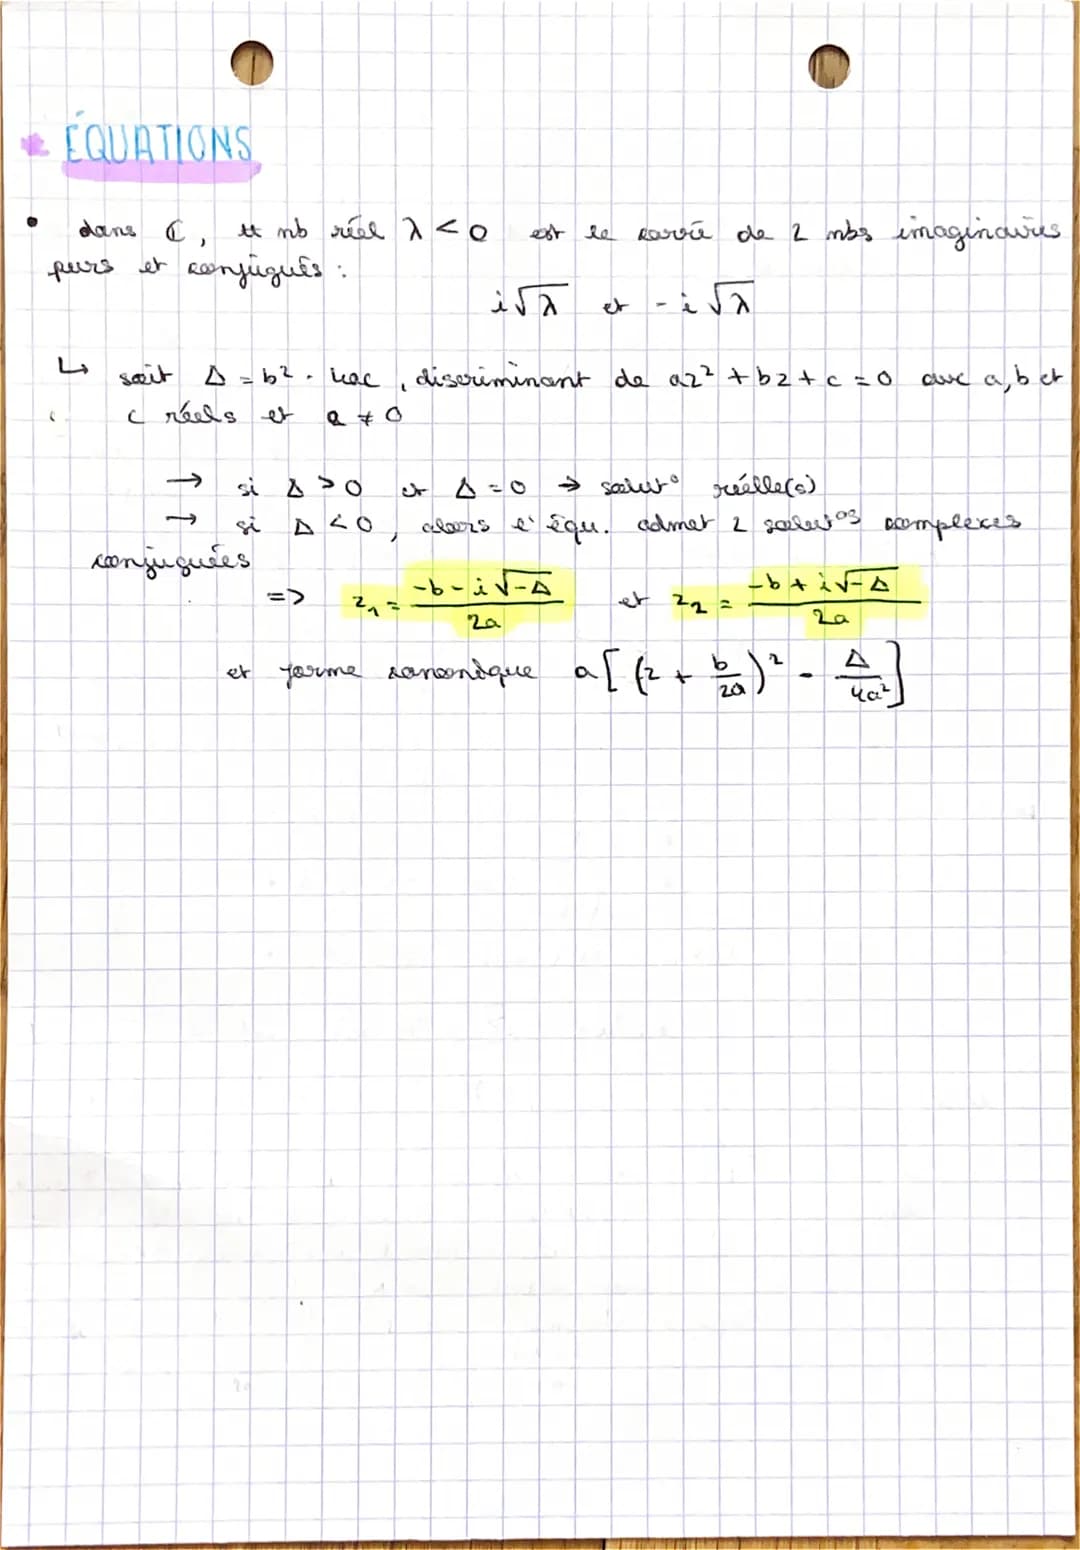 ÉQUATIONS
• dans ℂ, tt nb réel λ < 0 est le carré de 2 nbs imaginaires
purs et conjugués :
i√λ et -i√λ
↳ soit Δ = b² - 4ac, discriminant de az² + bz + c = 0 avec a, b et
c réels et a ≠ 0
→ si Δ > 0 et Δ = 0 → solut° réelle(s)
→ si Δ < 0, alors l'équ. admet 2 solut°s complexes
conjuguées
=> z₁ = (-b - i√-Δ)/(2a) et z₂ = (-b + i√-Δ)/(2a)
et forme canonique a[(z + b/2a)² - Δ/4a²]